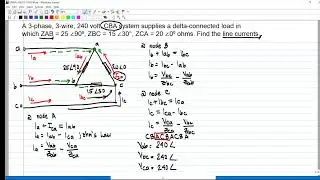 A 3-phase, 3-wire, 240 volt, CBA system supplies a delta-connected load in
which ZAB = 25 ∠90º, ZBC = 15 ∠30º, ZCA = 20 ∠0º ohms. Find the line currents.
a
Ia
25∠90
20∠0
b
Ib
15∠30
c
Ic
@ node A
Ia + Ica = Iab
Ia = Iab - Ica
Ia = Vab/Zab - Vca/Zca
@ node B
Ib + Iab = Ibc
Ib = Ibc - Iab
@ node C
Ic + Ibc = Ica
Ic = Ica - Ibc
Ic = Vca/Zca - Vbc/Zbc
CBACBACBA
Vab = 240∠
Vbc = 240∠
Vca = 240∠